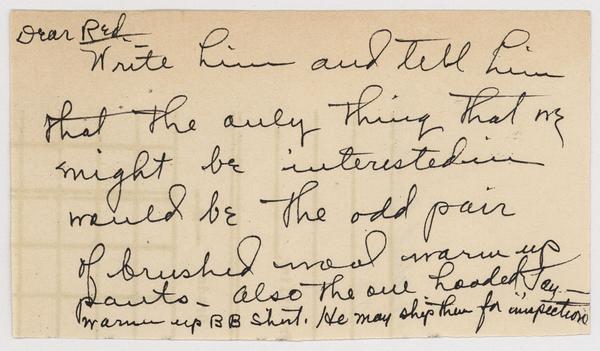 Dear Red—
Write him and tell him
that the only thing that we
might be interested in
would be the odd pair
of brushed wool warm up
pants - Also the one hooded Jay -
warm up BB Shirt. He may ship them for "inspection"